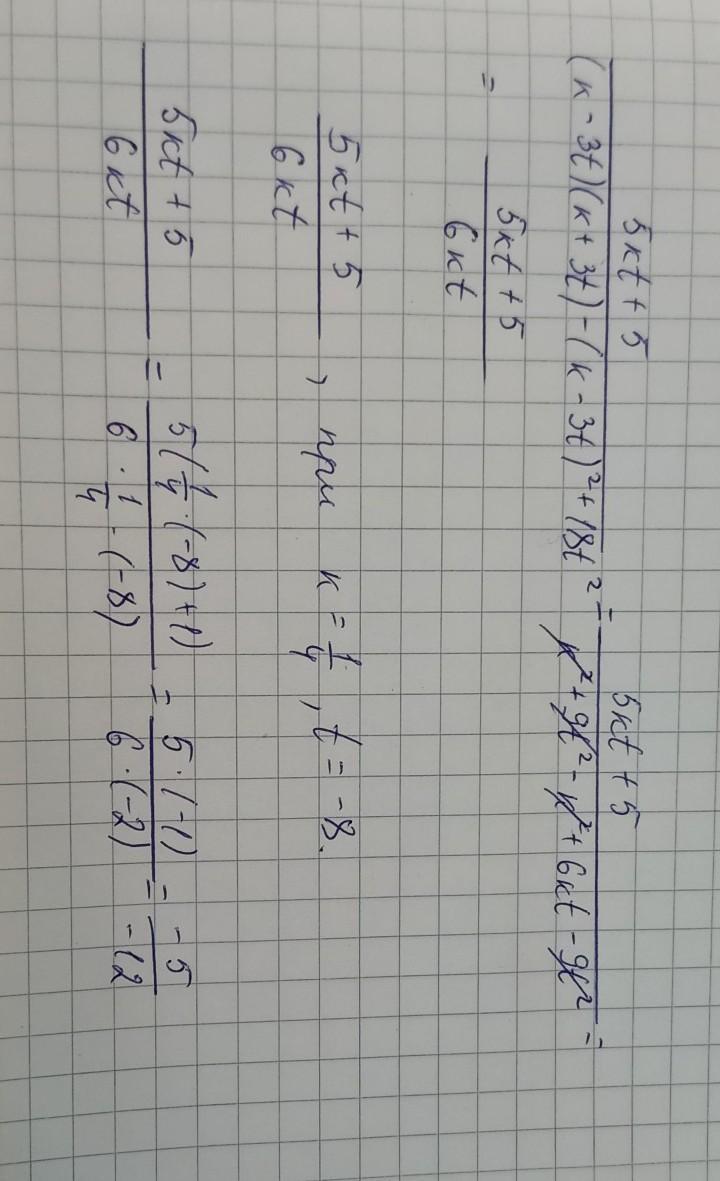 5кt + 5 / (к - 3t)(к + 3t) - (к - 3t)² + 18t² = 5кt + 5 / к² + 9t² - к² + 6кt - 9t² =
= 5кt + 5 / 6кt
5кt + 5 / 6кt , при к = 1/4 , t = -8.
5кt + 5 / 6кt = 5(1/4 · (-8) + 1) / 6 · 1/4 · (-8) = 5 · (-1) / 6 · (-2) = -5 / -12